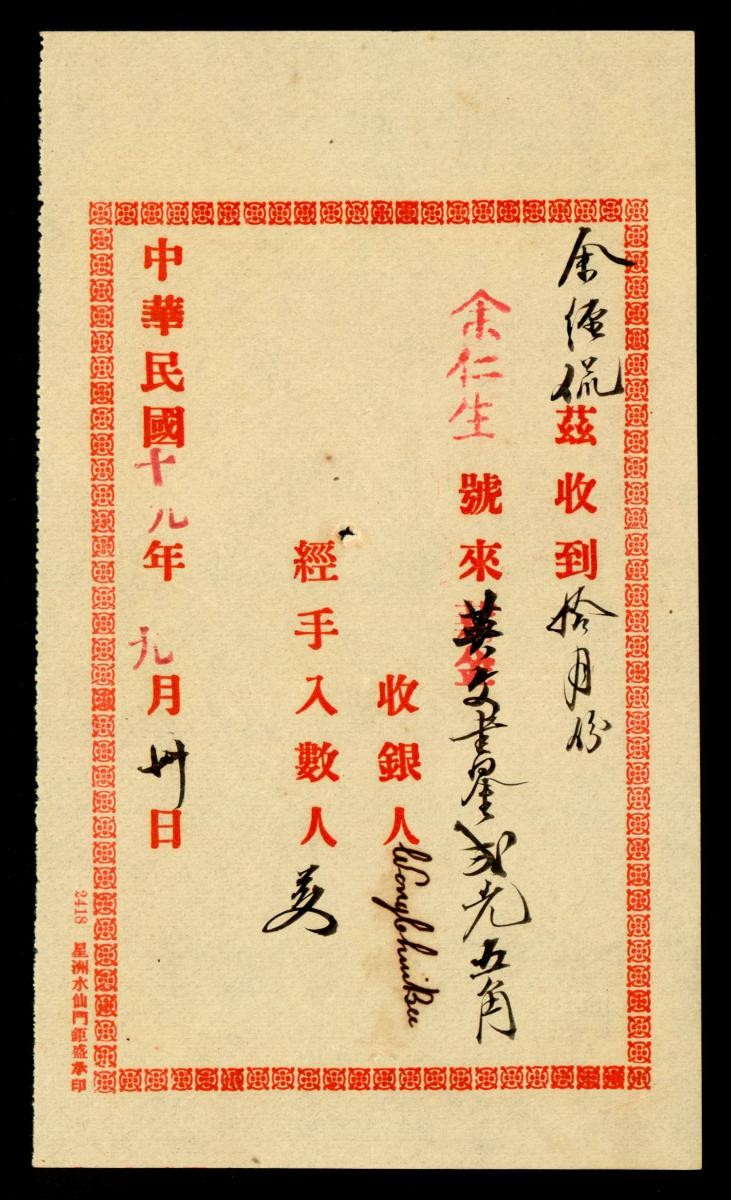 余經侃茲收到拾月份
余仁生號來英文書弍元五角
收銀人 Wong Chui Bee
經手入數人
中華民國十九年九月卅日
2418 星洲水仙門鉅盛承印